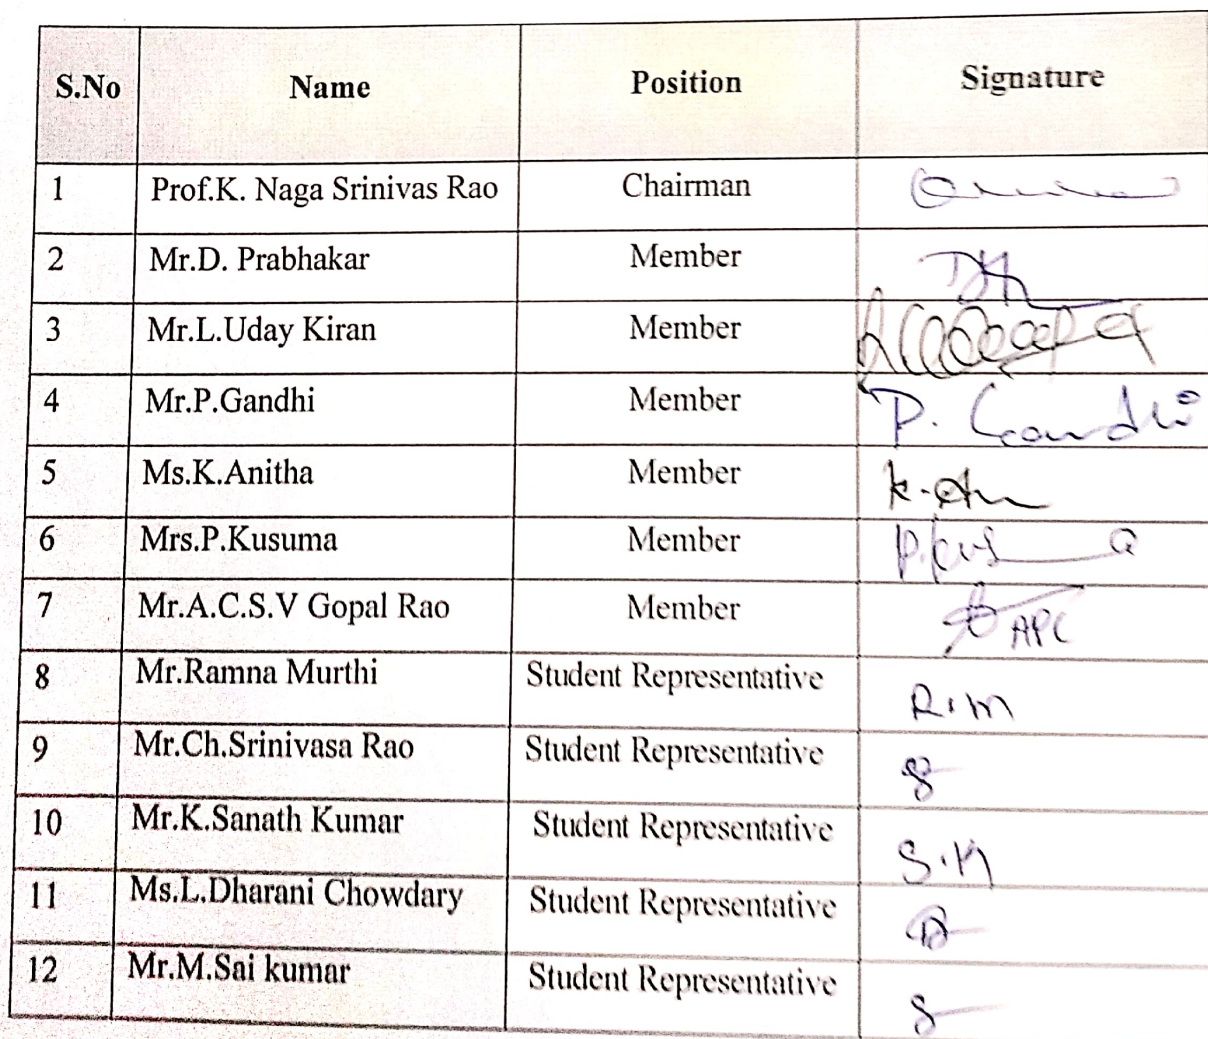 S.No Name Position Signature
1 Prof.K. Naga Srinivas Rao Chairman
2 Mr.D. Prabhakar Member
3 Mr.L.Uday Kiran Member
4 Mr.P.Gandhi Member P. Gandhi
5 Ms.K.Anitha Member
6 Mrs.P.Kusuma Member
7 Mr.A.C.S.V Gopal Rao Member APC
8 Mr.Ramna Murthi Student Representative R.M
9 Mr.Ch.Srinivasa Rao Student Representative
10 Mr.K.Sanath Kumar Student Representative S.K
11 Ms.L.Dharani Chowdary Student Representative
12 Mr.M.Sai kumar Student Representative